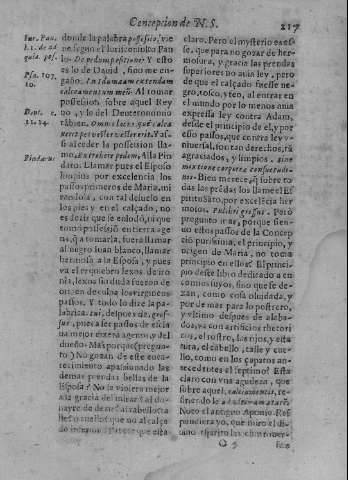 Concepcion de N. S.
217
Iur. Pau.
l. 1. de ad
quir. pos.
Psa. 107.
10.
Deut. c.
11. 24.
Pindarus
donde la palabra possessio, vie
ne segun el Iurisconsulto Pau
lo. De pedum positione: Y esto
es lo de Dauid, sino me en-
gaño. In Idumæam extendam
calceamentum meũ. Al tomar
possession sobre aquel Rey
no, y lo del Deuteronomio
tãbien. Omnis locus quẽ calca
uerit pes vester vester erit. Y as-
si acceder la possession llamã
En tithete pedem, Alla Pin
daro. Llamar pues el Esposo
limpios por excelencia los
passos primeros de Maria, mi
randola, con tal desuelo en
los pies y en el calçado, no
es dezir que se enlodò, ni que
tomò possessiõ en tierra age
na, q̃ a tomarla, fuera llamar
al negro Iuan blanco, llamar
hermosa a la Esposa, y pues
va el requiebro lexos de iro
nia, lexos sin duda fueron de
otra en de culpa los virgineos
passos. Y todo lo dize la pa-
labrica. tui, despues de, gres-
sus, pues a ser passos de essa
na mejor dixera agenos y del
dueño. Mas porque (pregun-
to) No gozan de este enca-
recimiento apassionado las
demas prendas bellas de la
Esposa? No la viniera mejor
a la gracia del mirar? al do-
nayre de
no al calça
do
claro. Pero el mysterio es es-
se, que para no gozar de her-
mosura, y gracia las prendas
superiores no auia ley, pero
de que el calçado fuesse ne-
gro, tosco, y feo, al entrar en
el mundo por lo menos auia
expressa ley contra Adam,
desde el principio de el, y por
esso passos, que contra ley v-
niuersal, son tan derechos, tã
agraciados, y limpios. sine
mixtione corporeæ consuetudi-
nis. Bien merece, q̃ sobre to-
das las prẽdas los llame el Es
piritu Santo, por excelencia her
mosos. Pulchri gressus. Pero
pregunto mas, porque sien-
do estos passos de la Concep
ciõ purissima, el principio, y
origen de Maria, no toma
principio en ellos? El princi-
pio deste libro dedicado a en-
comios suyos, sino que se de-
zan, como cosa oluidada, y
por de mas para lo postrero,
y vltimo despues de alaba-
dos, ya con artificios rhetori
cos, el rostro, las ojos, y esta
tura, el cabello, talle y cue-
llo, como en los capatos an-
tecedentes el septimo? Està
claro con vna agudeza, que
sobre aquel, calceamentis, re-
finiendo le
Noto el antiguo Aponio. Res
pondiera yo, que miro el di-
uino
Q 5